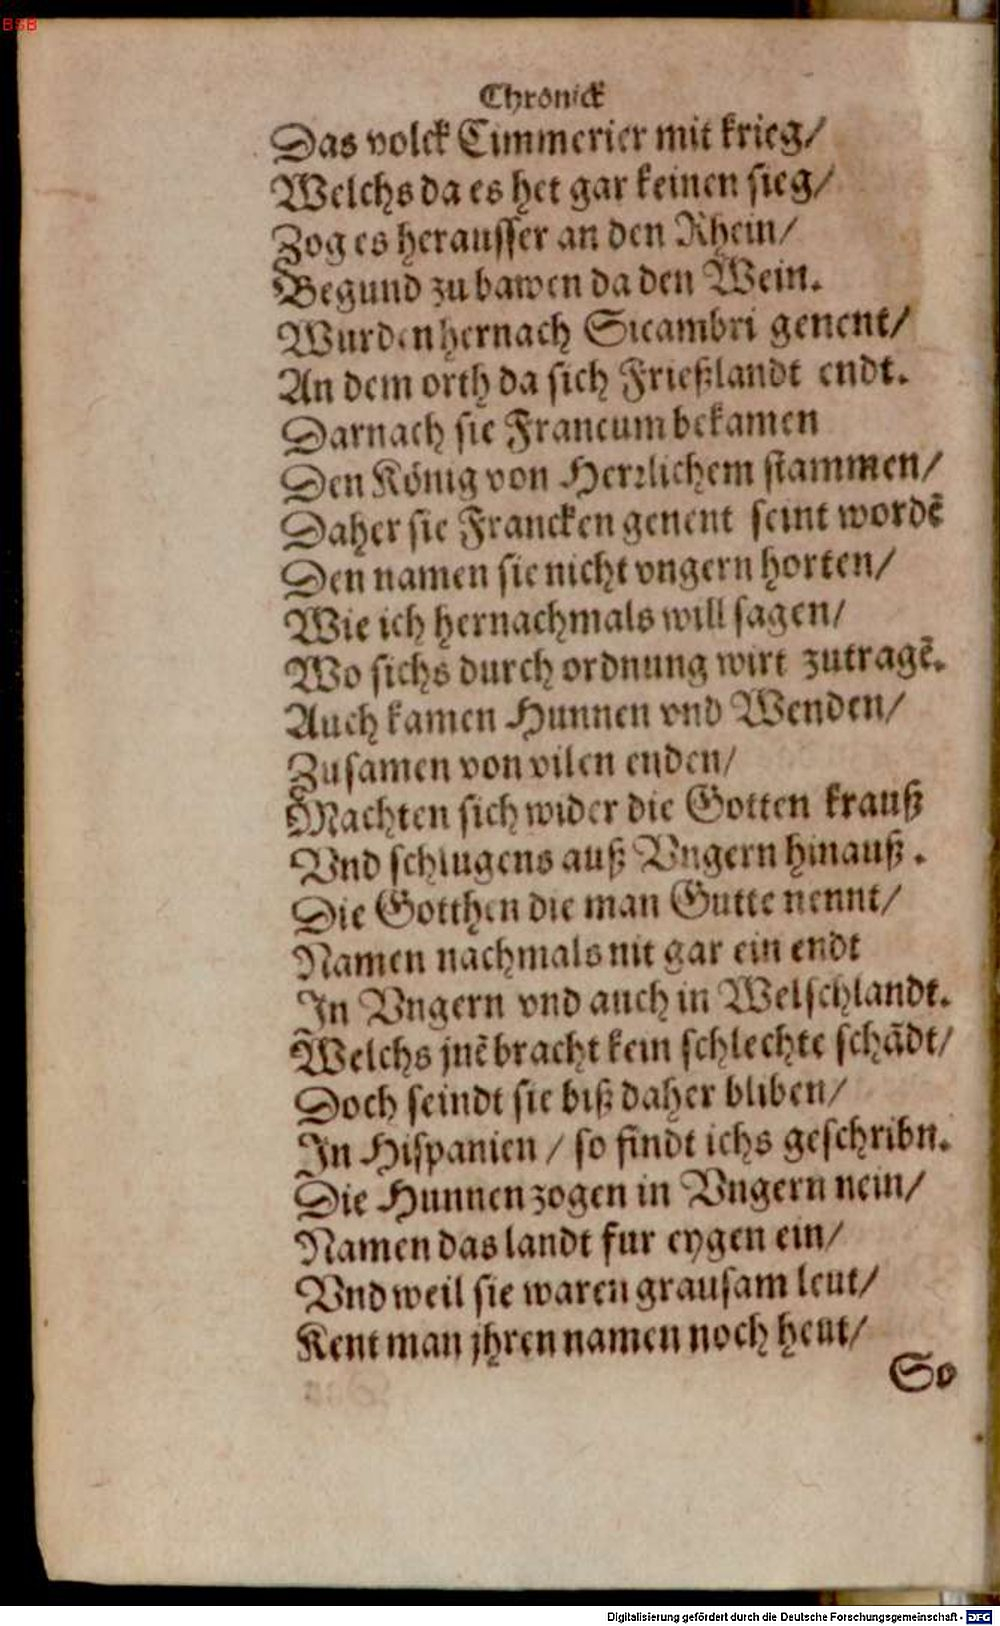 BSB
Chronick
Das volck Cimmerier mit krieg/
Welchs da es het gar keinen sieg/
Zog es herausser an den Rhein/
Begund zu bawen da den Wein.
Wurden hernach Sicambri genent/
An dem orth da sich Frießlandt endt.
Darnach sie Francum bekamen
Den König von Herrlichem stammen/
Daher sie Francken genent seint wordẽ
Den namen sie nicht vngern horten/
Wie ich hernachmals will sagen/
Wo sichs durch ordnung wirt zutragẽ.
Auch kamen Hunnen vnd Wenden/
Zusamen von vilen enden/
Machten sich wider die Gotten krauß
Vnd schlugens auß Vngern hinauß.
Die Gotthen die man Gutte nennt/
Namen nachmals nit gar ein endt
In Vngern vnd auch in Welschlandt.
Welchs jnẽ bracht kein schlechte schãdt/
Doch seindt sie biß daher bliben/
In Hispanien / so findt ichs geschribn.
Die Hunnen zogen in Vngern nein/
Namen das landt fur eygen ein/
Vnd weil sie waren grausam leut/
Kent man jhren namen noch heut/
So
Digitalisierung gefördert durch die Deutsche Forschungsgemeinschaft - DFG